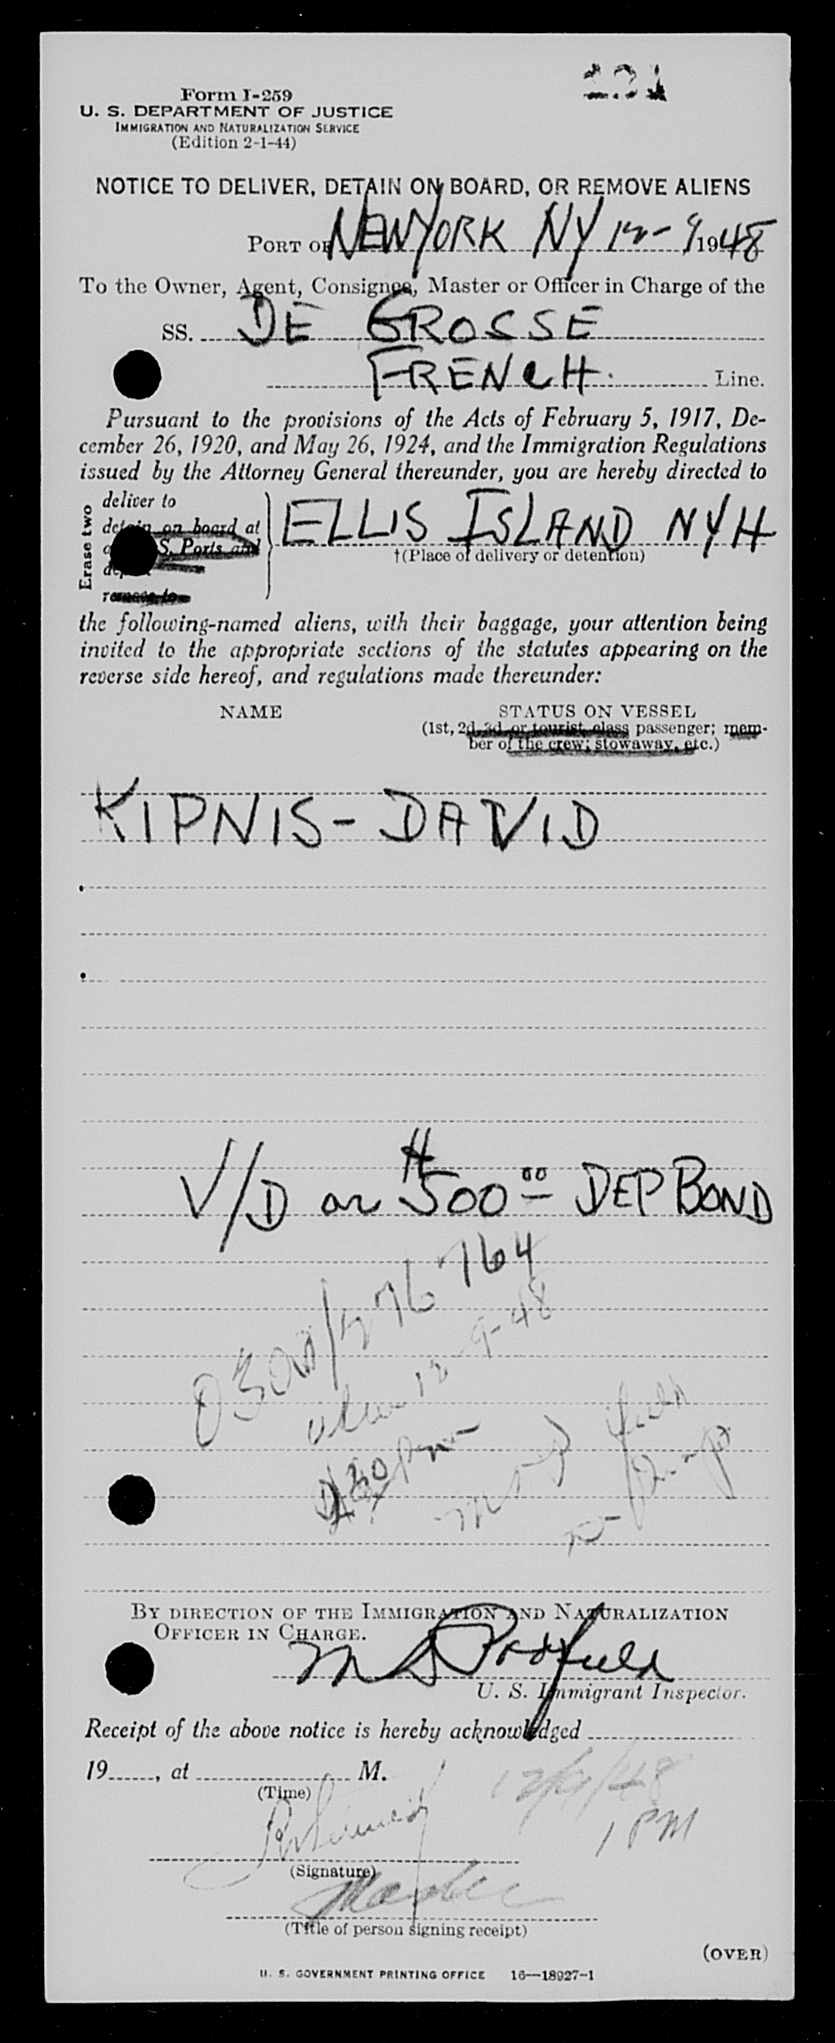 Form I-259
U. S. DEPARTMENT OF JUSTICE
IMMIGRATION AND NATURALIZATION SERVICE
(Edition 2-1-44)
NOTICE TO DELIVER, DETAIN ON BOARD, OR REMOVE ALIENS
PORT OF NEW YORK NY 12-9 1948
To the Owner, Agent, Consignee, Master or Officer in Charge of the
SS. DE GROSSE
FRENCH. Line.
Pursuant to the provisions of the Acts of February 5, 1917, De-
cember 26, 1920, and May 26, 1924, and the Immigration Regulations
issued by the Attorney General thereunder, you are hereby directed to
Erase two
deliver to
detain on board at
S. Ports and
remove to
ELLIS ISLAND NYH
†(Place of delivery or detention)
the following-named aliens, with their baggage, your attention being
invited to the appropriate sections of the statutes appearing on the
reverse side hereof, and regulations made thereunder:
NAME STATUS ON VESSEL
(1st, 2d, 3d, or tourist class passenger; mem-
ber of the crew; stowaway, etc.)
KIPNIS - DAVID
V/D or $500 00 DEP BOND
0300/276764
12-9-48
BY DIRECTION OF THE IMMIGRATION AND NATURALIZATION
OFFICER IN CHARGE.
U. S. Immigrant Inspector.
Receipt of the above notice is hereby acknowledged
19......, at M.
(Time)
12/9/48
1 PM
(Signature)
(Title of person signing receipt)
(OVER)
U. S. GOVERNMENT PRINTING OFFICE 16—18927-1